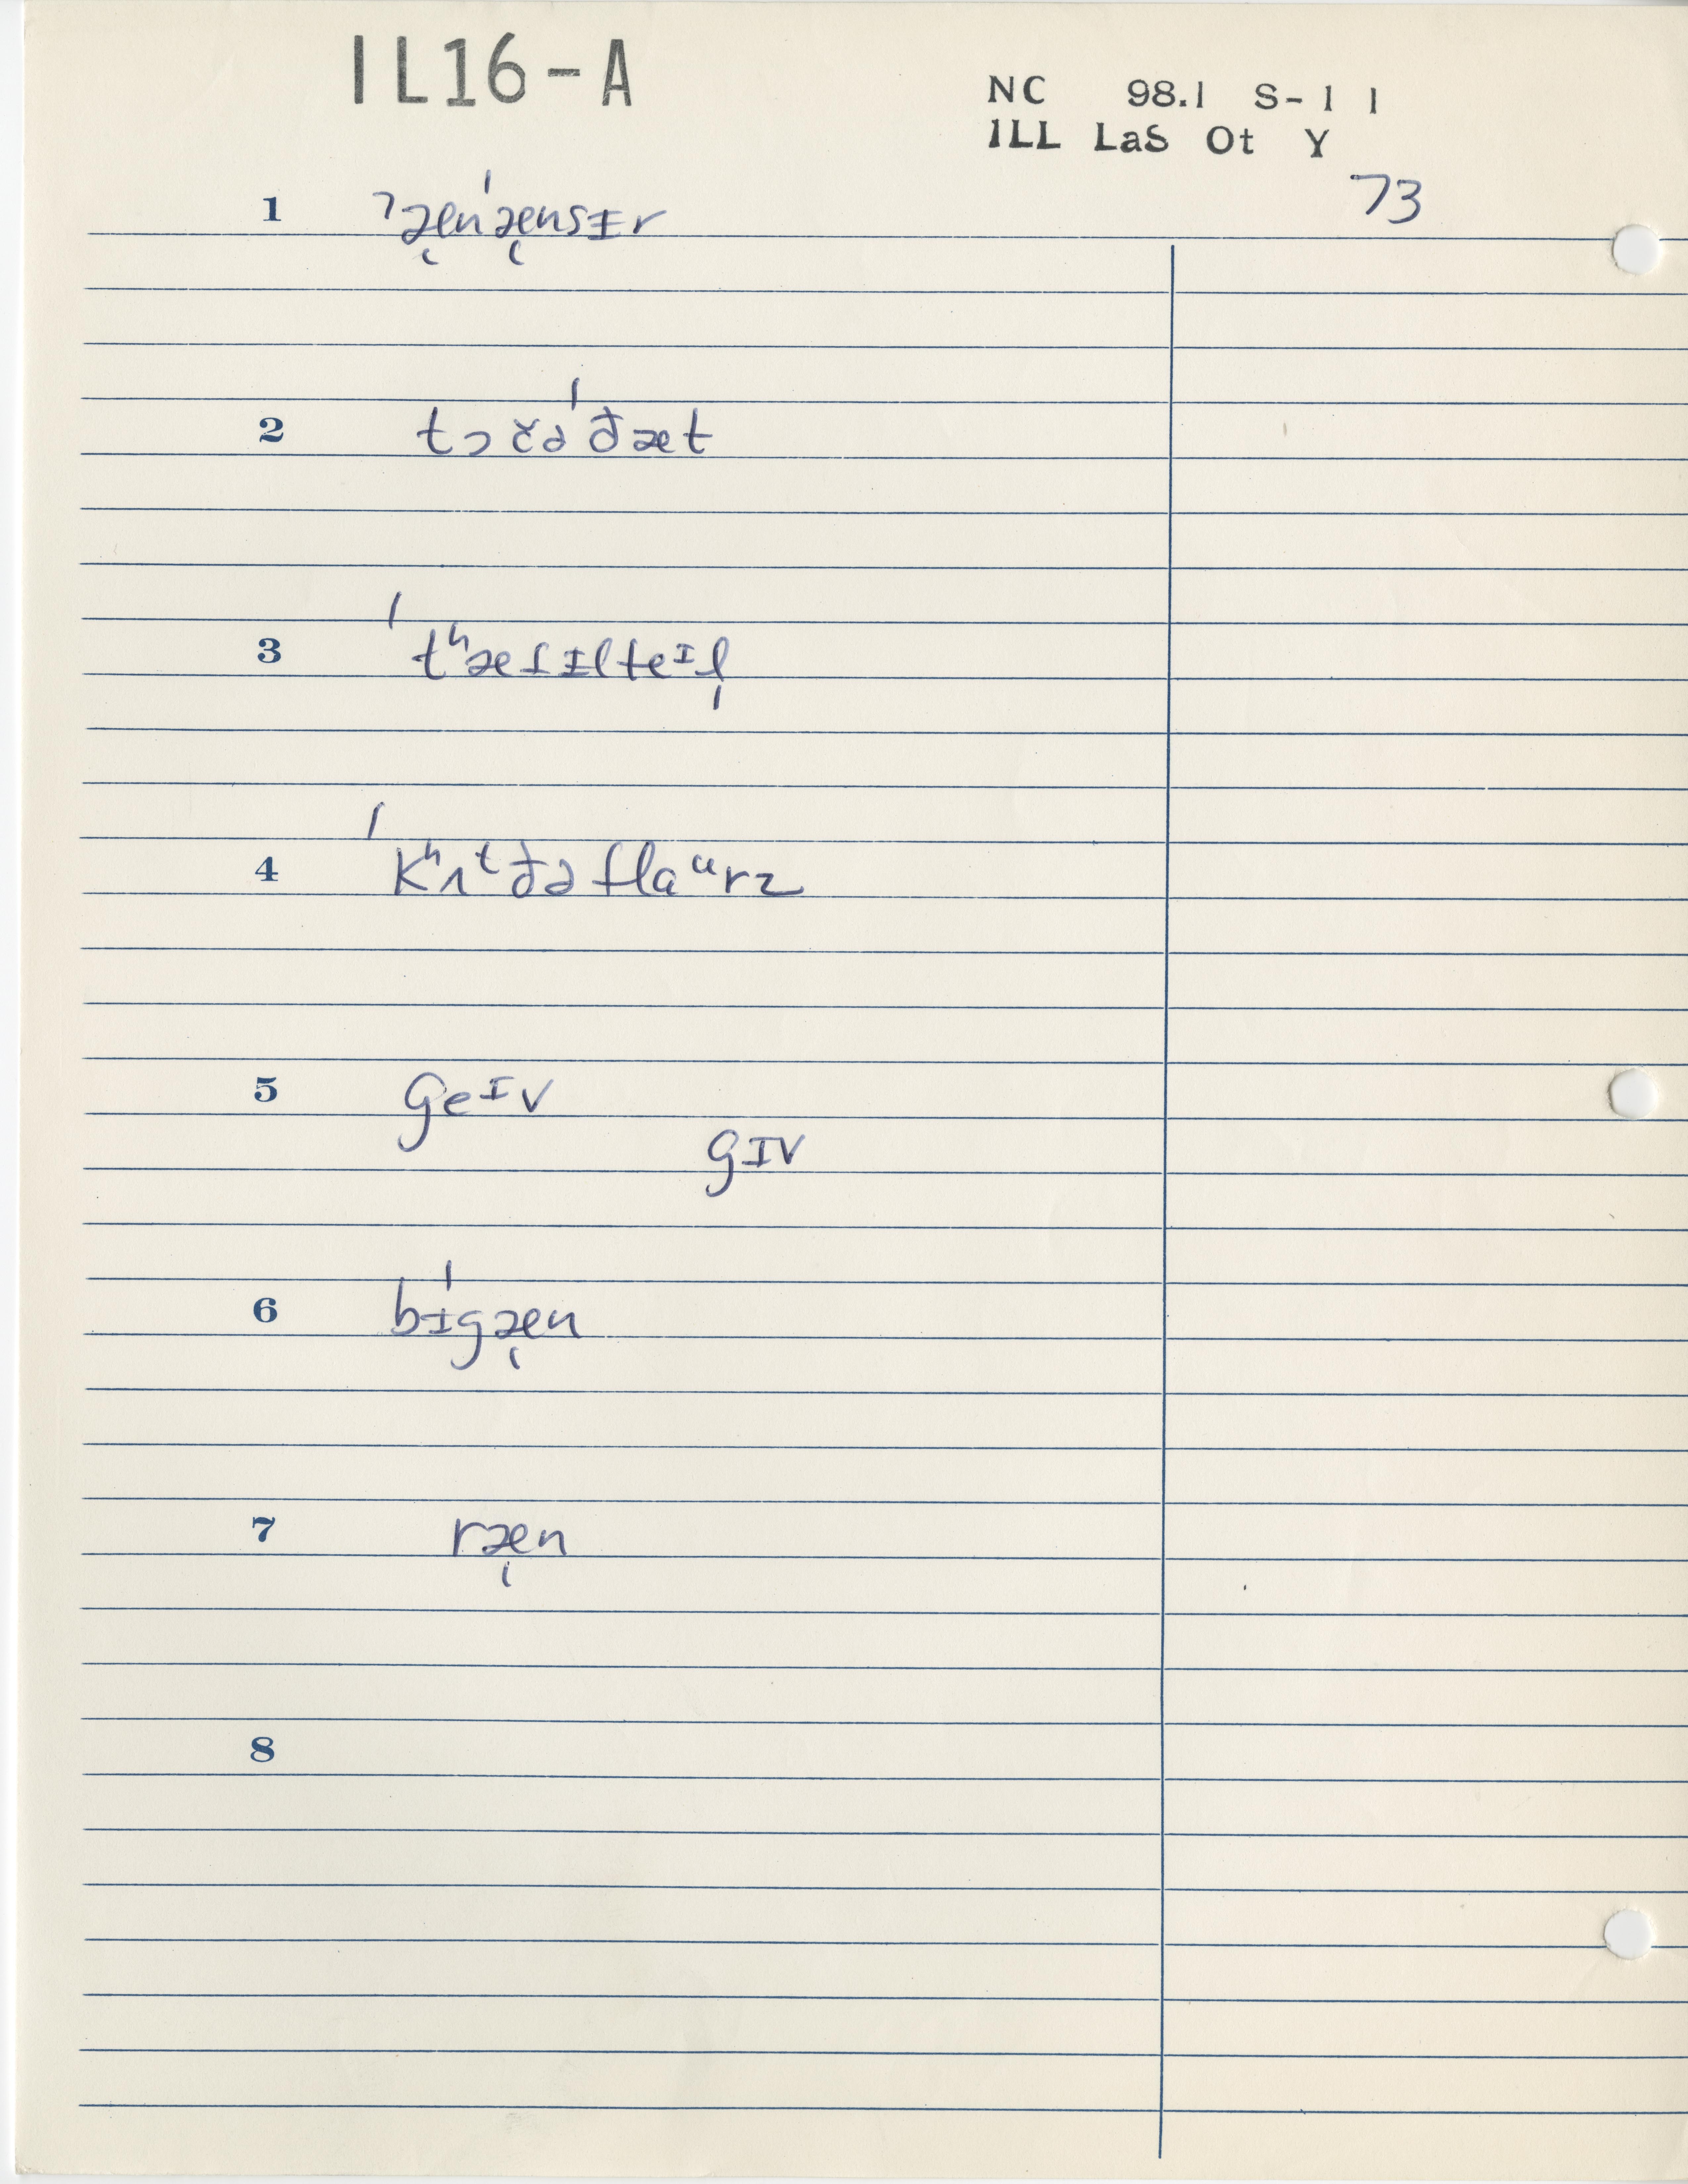 IL16-A
NC 98.1 S-11
ILL LaS Ot Y
73
1 ˀæ̨nˈæ̨nsɨr
2 tɔčəˈđæt
3 ˈtʰæsɨlteᶦl̩
4 ˈkʰʌᵗđə flaᵘrz
5 geᶦv
gɪv
6 bɨˈgæ̨n
7 ræ̨n
8